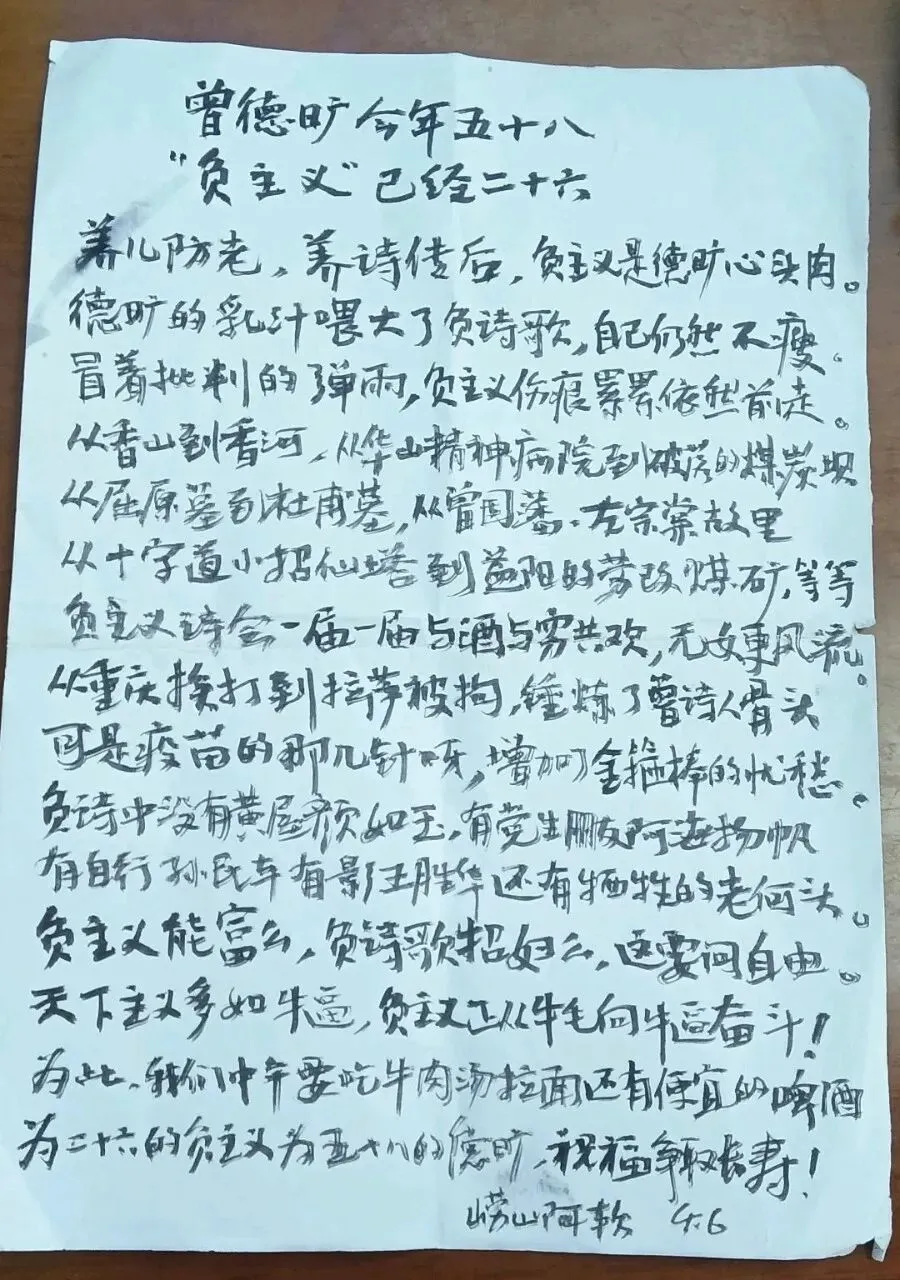 曾德旷今年五十八
“负主义”已经二十六
养儿防老，养诗传后，负主义是德旷心头肉。
德旷的乳汁喂大了负诗歌，自己仍然不瘦.
冒着批判的弹雨，负主义伤痕累累依然前走。
从香山到香河，从华山精神病院到破落的煤炭坝
从屈原墓到杜甫墓，从曾国藩.左宗棠故里
从十字道小招仙塔到益阳的劳改煤矿，等等
负主义诗会一届一届与酒与雾共欢，无女更风流。
从重庆挨打到拉萨被拘，锤炼了曾诗人骨头
可是疫苗的那几针呀，增加了金箍棒的忧愁。
负诗中没有黄屋颜如玉，有党生朋友阿海扬帆
有自行孙民车有影王胜华还有牺牲的老何头。
负主义能富么，负诗歌招妇么，这要问自由。
天下主义多如牛逼，负主义正从牛毛向牛逼奋斗！
为此.我们中午要吃牛肉汤拉面还有便宜的啤酒
为二十六的负主义为五十八的德旷，祝福争取长寿！
崂山阿软 4.6